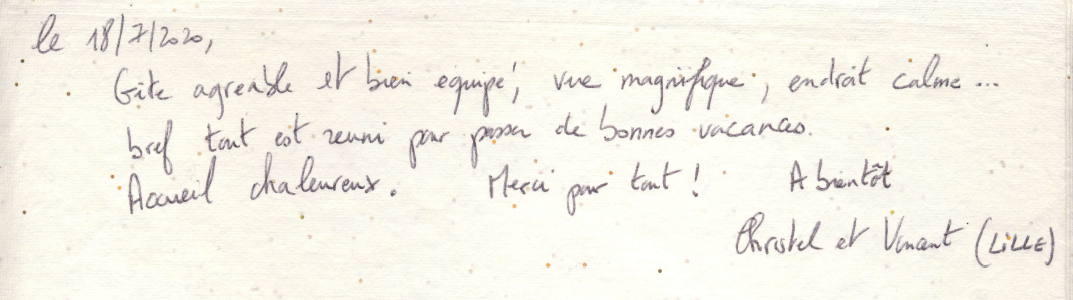 le 18/7/2020,
Gite agreable et bien equipé, vue magnifique, endroit calme ...
bref tout est reuni pour passer de bonnes vacances.
Accueil chaleureux. Merci pour tout ! A bientôt
Christel et Vincent (LiLLE)